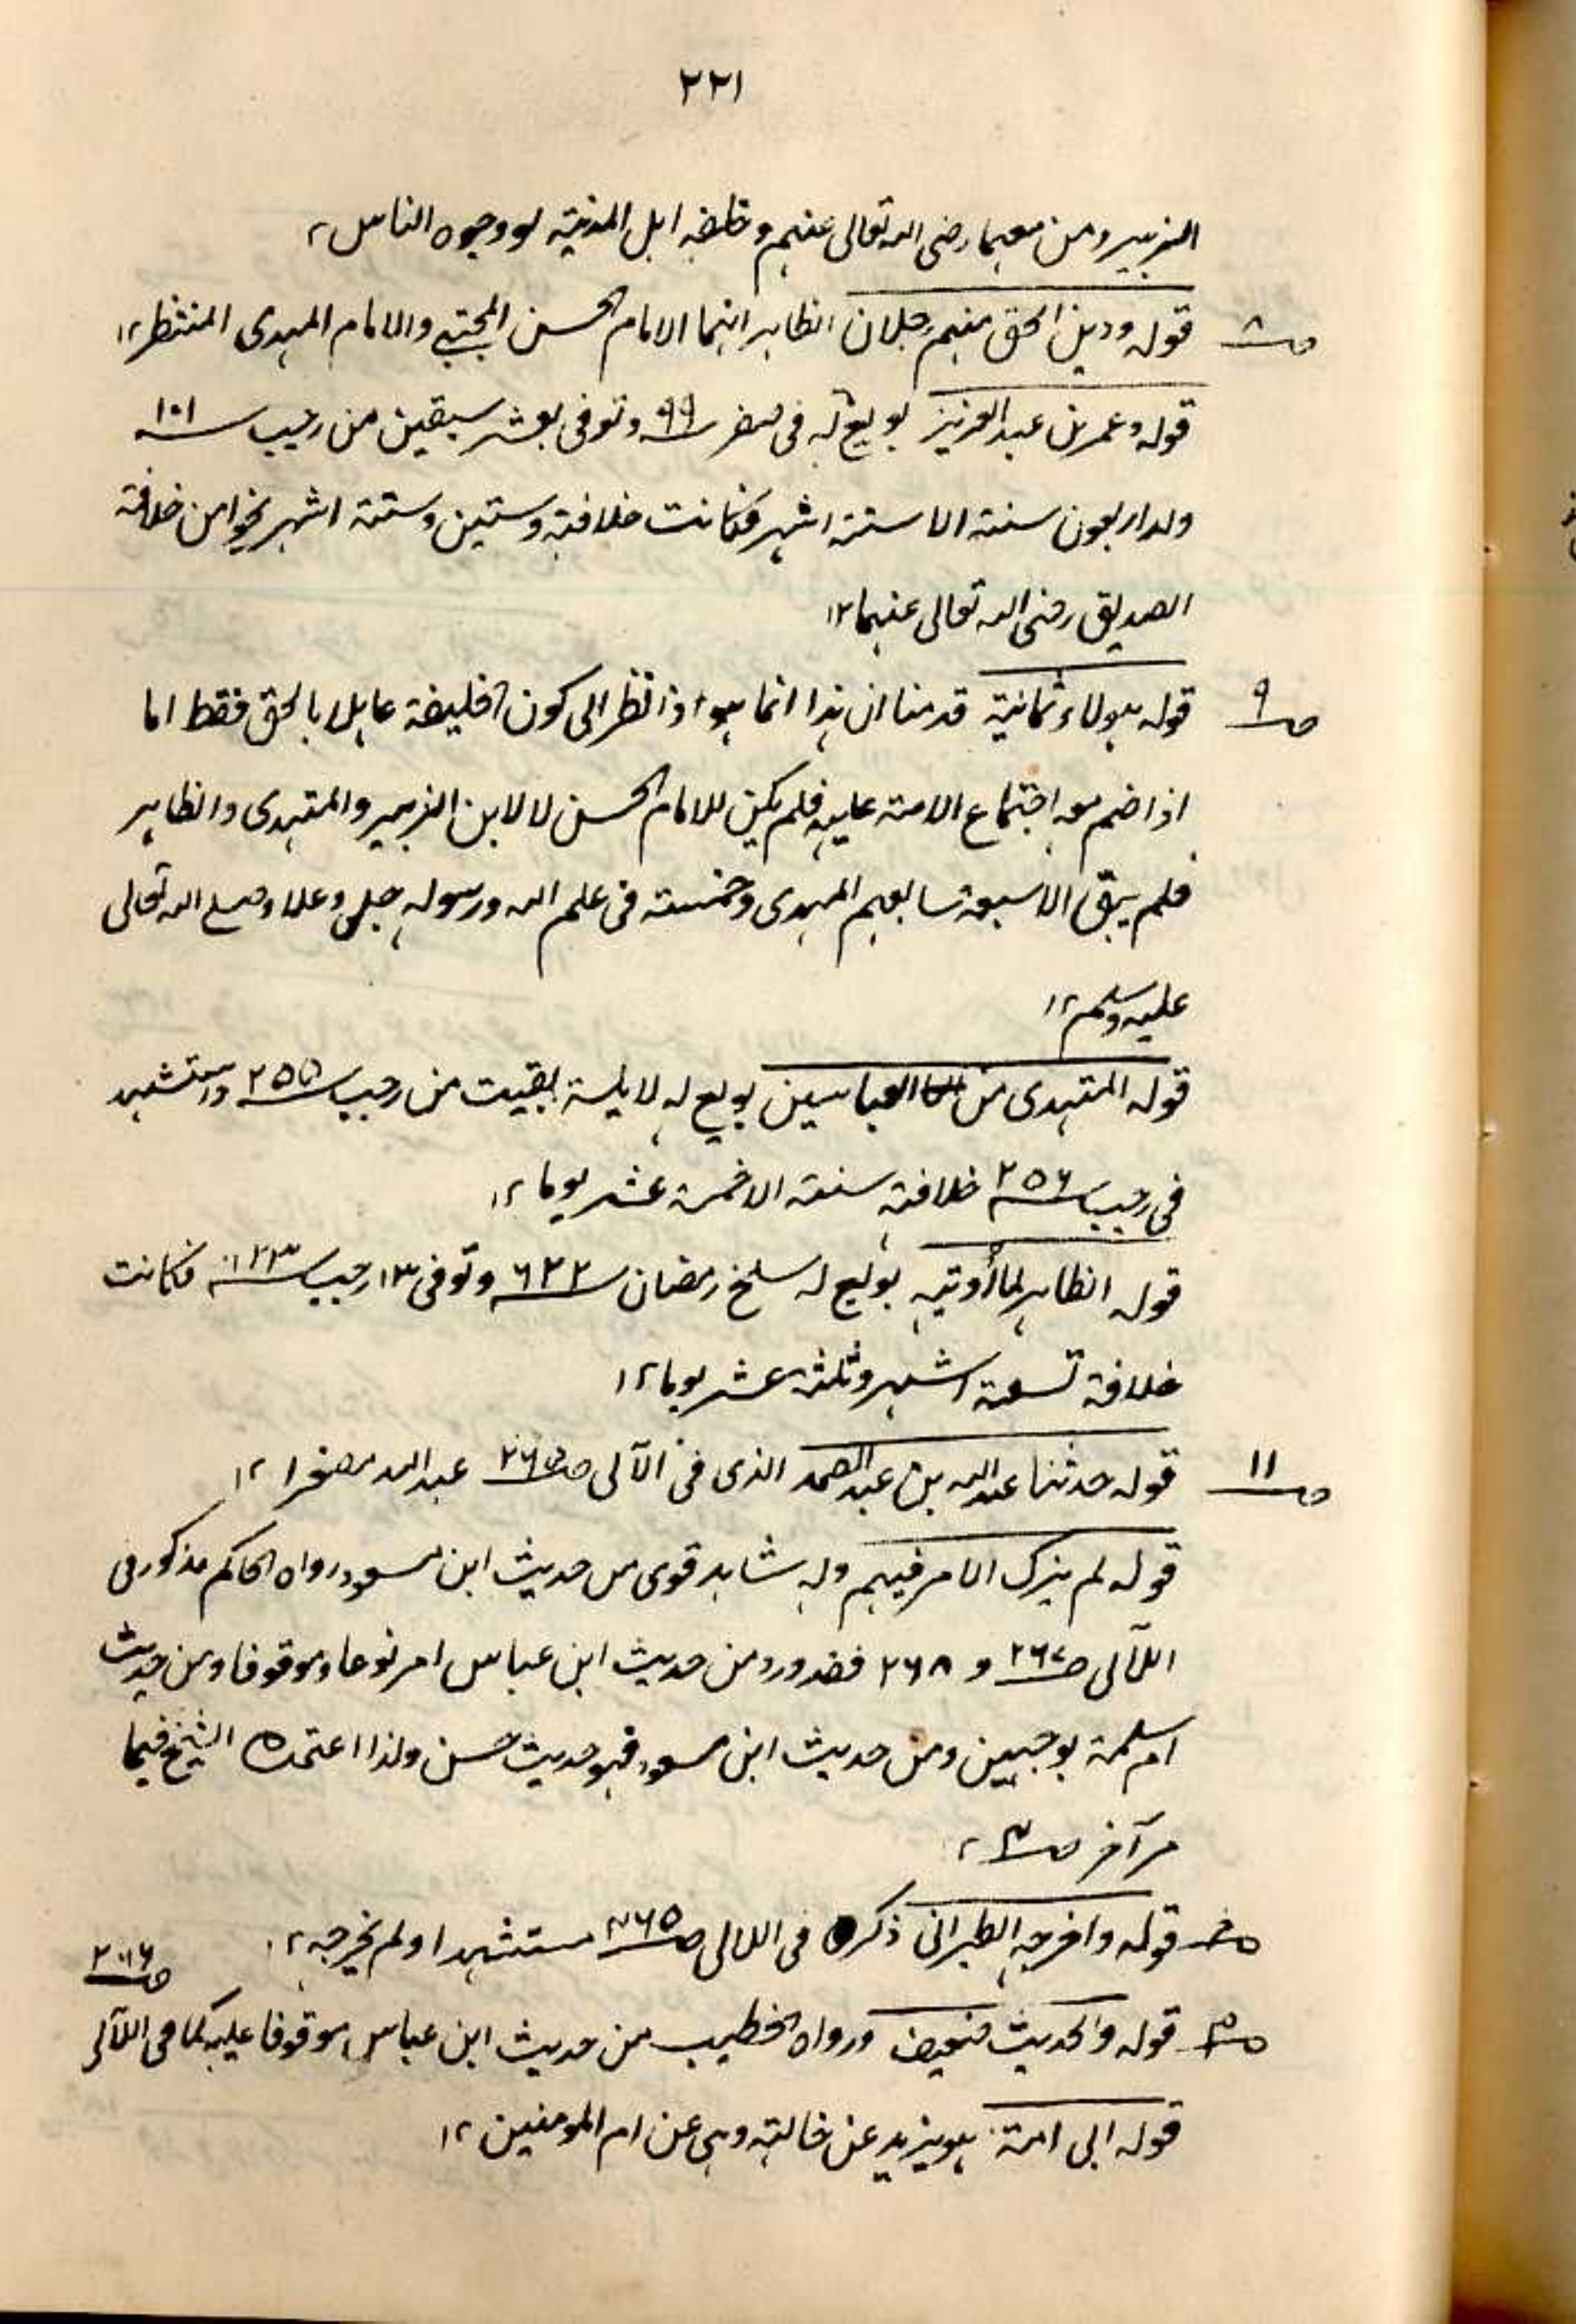 ٢٢١
الزبير ومن معهما رضى الله تعالى عنهم وخلفه اهل المدينة ووجوه الناس ١٢
ص٨ قوله ودين الحق منهم رجلان الظاهر انهما الامام الحسن المجتبى والامام المهدى المنتظر ١٢
قوله وعمر بن عبد العزيز بويع له فى صفر سنة ٩٩ وتوفى بعشر بقين من رجب سنة ١٠١
وله اربعون سنة الا ستة اشهر فكانت خلافته سنتين وستة اشهر نحوا من خلافة
الصديق رضى الله تعالى عنهما ١٢
ص٩ قوله هولاء ثمانية قدمنا ان هذا انما هو اذا نظر الى كون الخليفة عاملا بالحق فقط اما
اذا ضم معه اجتماع الامة عليه فلم يكن للامام الحسن لا لابن الزبير والمهتدى والظاهر
فلم يبق الا سبعة سابعهم المهدى وخمسة فى علم الله ورسوله جل وعلا وصلى الله تعالى
عليه وسلم ١٢
قوله المهتدى من العباسين بويع له لليلة بقيت من رجب سنة ٢٥٥ واستشهد
فى رجب سنة ٢٥٦ خلافته سنة الا خمسة عشر يوما ١٢
قوله الظاهر لما أوتيه بويع له سلخ رمضان سنة ٦٢٢ وتوفى ١٣ رجب سنة ٦٢٣ فكانت
خلافة تسعة اشهر وثلثة عشر يوما ١٢
ص١١ قوله حدثنا عبد الله بن عبد الصمد الذى فى الآلى ص٢٦٥ عبد الله مصغرا ١٢
قوله لم يزل الامر فيهم وله شاهد قوى من حديث ابن مسعود رواه الحاكم مذكور فى
اللآلى ص٢٦٧ و ٢٦٨ فقد ورد من حديث ابن عباس مرفوعا وموقوفا ومن حديث
ام سلمة بوجهين ومن حديث ابن مسعود فهو حديث حسن ولذا اعتمده الشيخ فيما
مر آخر ص
قوله واخرجه الطبرانى ذكره فى اللالى ص٢٦٥ مستشهدا ولم يخرجه ١٢
قوله والحديث ضعيف ورواه الخطيب من حديث ابن عباس موقوفا عليه كما فى اللآلى
قوله ابى امة هو يزيد عن خالته وهى عن ام المومنين ١٢